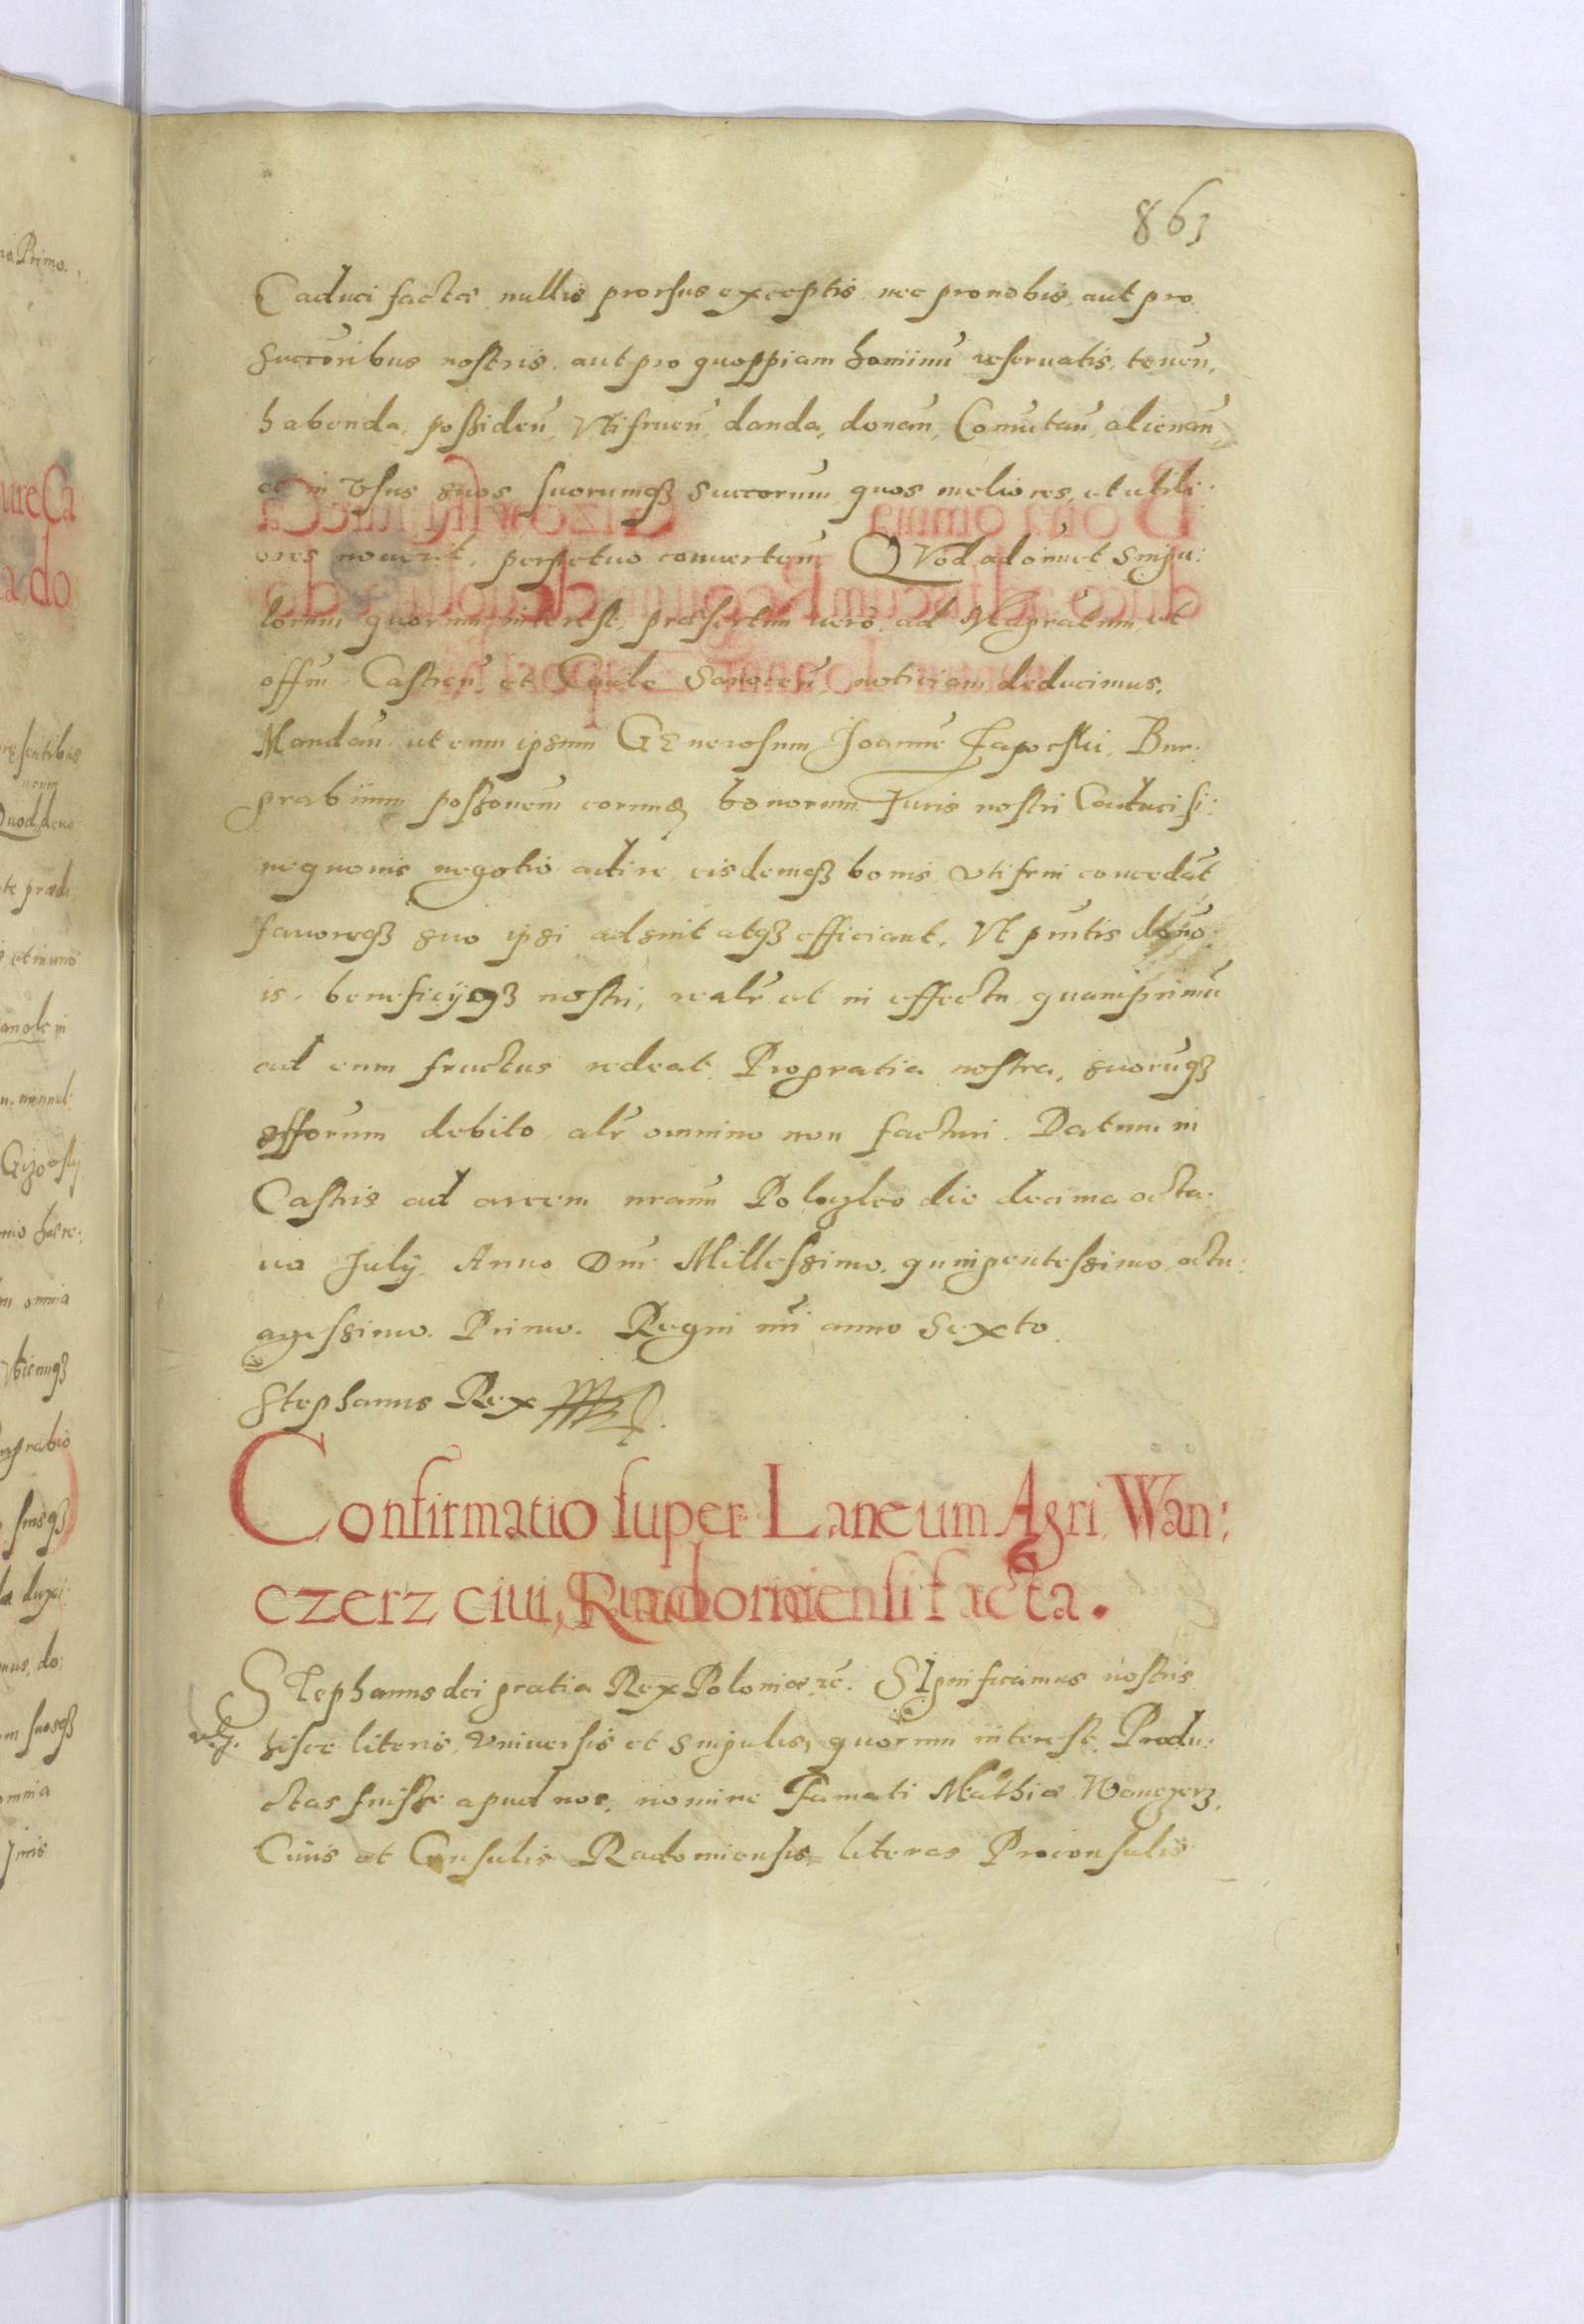 861
Caduci factæ nullis prorsus exceptis nec pro nobis aut pro
Succoribus nostris. aut pro quoppiam hominū reservatis, tenen̄,
habenda, possiden̄, Vtifruen̄, danda, donan̄, Comutan̄, alienan̄,
et in Vsus suos suorumqȝ Succorum quos meliores, et utili:
ores noverit, perpetuo convertem̄ QVod ad om̄iū et Singu:
lorum quorum interest, præsertim vero, ad Magratum, et
offm̄ Castren̄ et Ciuile Sanocen̄ noticiam deducimus.
Mandan̄ ut eum ipsum GEnerosum Joannē Bur:
grabium possonem̄ eorumqȝ bonorum Juris nostri Caduci si:
ne quouis negotio adire, eisdemqȝ bonis vtifrui concedāt,
favoreqȝ suo ipsi adsint atqȝ efficiant, Vt pn̄tis dōnō
is, beneficijqȝ nostri, realr̄ et in effectu quamprimū
ad eum fructus redeat. Pro gratia nostra, suorūqȝ
offorum debito alr̄ omnino non facturi. Datum in
Castris ad arcem nram̄ die decima octa:
va July Anno Dn̄i Millessimo, quingentessimo octu:
agessimo. Primo. Regni nr̄i anno Sexto.
Stephanus Rex
Confirmatio super Laneum Agri Wan:
czerz ciui Radomiensi facta.
STephanus dei gratia Rex Poloniæ rē. SIgnificamus nostris
hisce literis, Vniversis et Singulis, quorum interest, Produ:
ctas fuisse apud nos, nomine Famati Mathiæ Wanczerz,
Ciuis et Consulis Radomiensis literas Proconsulis